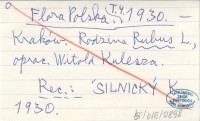 Flora Polska T.4 1930. —
Kraków. Rodzina Rubus L.,
oprac. Witold Kulesza.
Rec.: SILNICKY K.
1930.